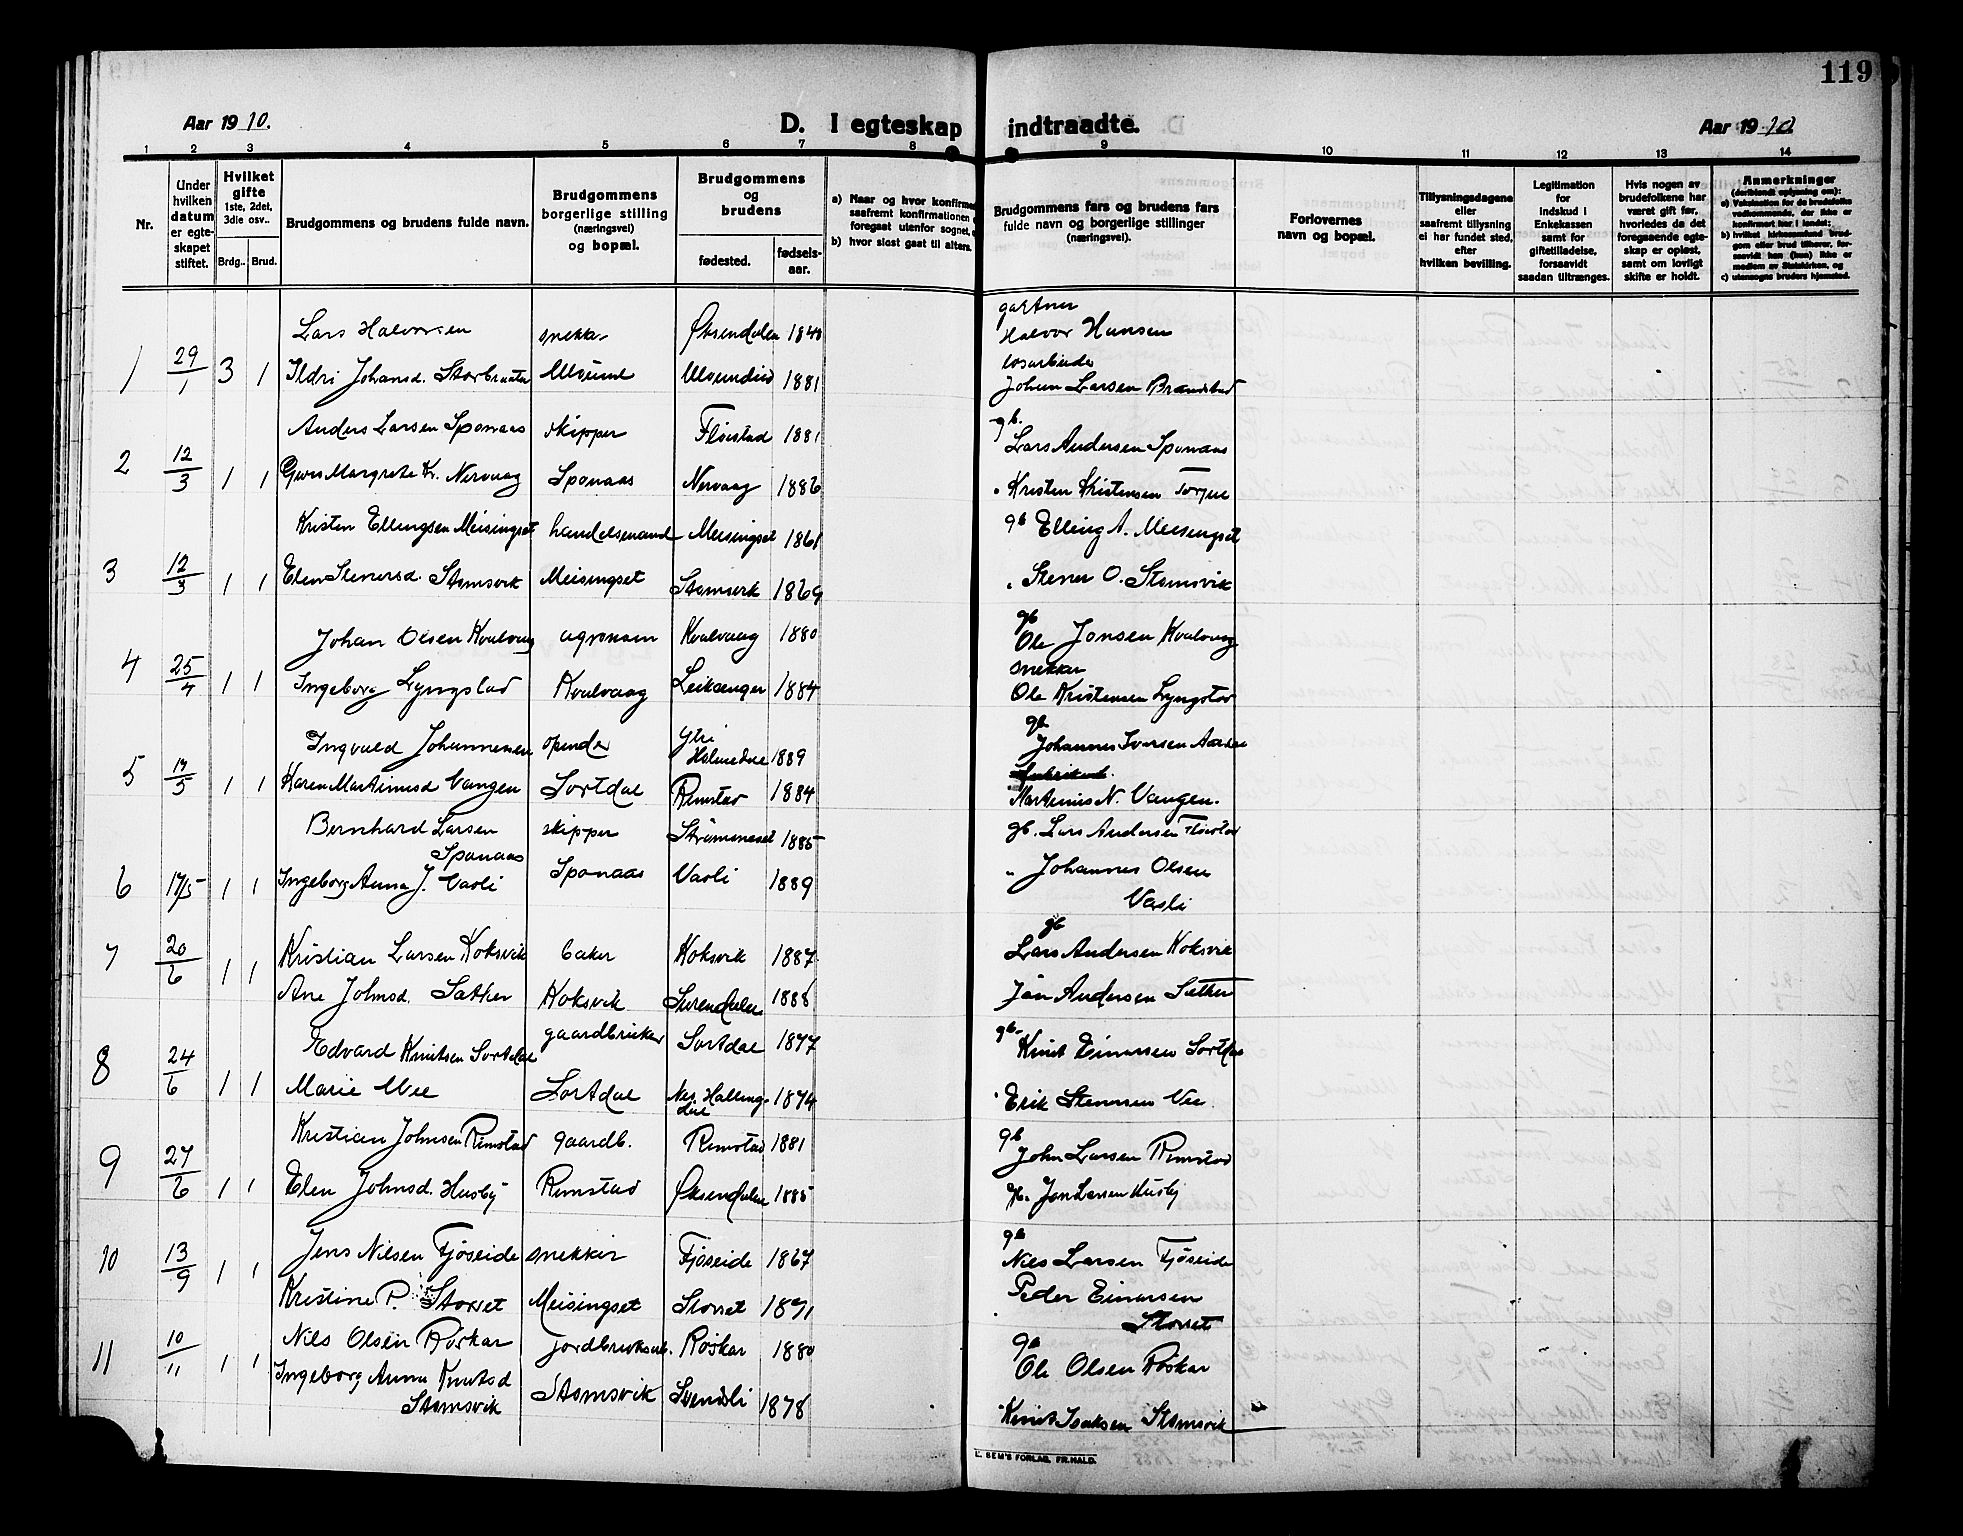 119
Aar 1910.
D. I egteskap indtraadte.
Aar 1910.
1 2 3 4 5 6 7 8 9 10 11 12 13 14
Nr.
Under hvilken datum er egteskapet stiftet.
Hvilket gifte 1ste, 2det, 3die osv..
Brdg.. Brud.
Brudgommens og brudens fulde navn.
Brudgommens borgerlige stilling (næringsvei) og bopæl.
Brudgommens og brudens
fødested. fødsels-aar.
a) Naar og hvor konfirme
saafremt konfirmationen
foregaat utenfor sognet,
b) hvor sidst gaat til alters.
Brudgommens fars og brudens fars fulde navn og borgerlige stillinger (næringsvei).
Forlovernes navn og bopæl.
Tillysningsdagene eller saafremt tillysning ei har fundet sted, efter hvilken bevilling.
Legitimation for indskud i Enkekassen samt for giftetilladelse, forsaavidt saadan tiltrænges.
Hvis nogen av brudefolkene har været gift før, hvorledes da det foregaaende egteskap er opløst, samt om lovligt skifte er holdt.
Anmerkninger
(deriblandt oplysning om):
a) Vaksination for de brudefolks vedkommende, der ikke er konfirmert her i landet;
b) hvilket kirkesamfund brudgom eller brud tilhører, forsaavidt han (hun) ikke er medlem av Statskirken, og
c) utensogns bruders hjemsted.
gartner
Lars Halvorsen snekker Øksendalen 1848 Halvor Hansen
1 29/1 3 1 Ildri Johansd. Ulvund 1881
Johan Larsen
Anders Larsen Sponaas skipper Fløistad 1881 gb. Lars Andersen Sponaas
2 12/3 1 1 Margrete Kr. Nervaag Sponaas Nervaag 1886 " Kristen Kristensen
Kristen Ellingsen Meisingset handelsmand Meisingset 1861 gb Elling A. Meisingset
3 12/3 1 1 Elen Stenersd. Stomsvik Meisingset Stomsvik 1869 " Stener O. Stomsvik
Johan Olsen Kvalvaag agronom Kvalvaag 1880 gb Ole Jonsen Kvalvaag
snekker
4 25/4 1 1 Ingeborg Lyngstad Kvalvaag Leiksenger 1884 Ole Kristensen Lyngstad
Ingvald Johannesen Ytre Halmedal 1889 gb Johannes Iversen
5 17/5 1 1 Karen Martinusd Vangen Sortdal Rimstad 1884 Martinus N. Vangen.
Bernhard Larsen Sponaas skipper Strømmeset 1885 gb. Lars Andersen Fløistad
6 17/5 1 1 Ingeborg Anna J. Vasli Sponaas Vasli 1889 " Johannes Olsen Vasli
7 20/6 1 1 Kristian Larsen Koksvik baker Koksvik 1887 gb Lars Andersen Koksvik
Ane Johnsd. Sæther Koksvik Surendalen 1888 Jon Andersen Sæther
Edvard Knutsen Sortdal gaardbruker Sortdal 1877 gb. Knut Einarsen Sortdal
8 24/6 1 1 Marie Sortdal Nes. Hallingdal 1874 " Erik
Kristian Johnsen Rimstad gaardb. Rimstad 1881 gb John Larsen Rimstad
9 27/6 1 1 Elen Johnsd. Husby Rimstad Øksendalen 1885 Jon Larsen Husby
10 13/9 1 1 Jens Nilsen Fjøseide snekker Fjøseide 1867 gb Nils Larsen Fjøseide
Kristine P. Storset Meisingset Storset 1871 Peder Einarsen Storset
11 10/11 1 1 Nils Olsen Røskar jordbruksarb. Røskar 1880 gb Ole Olsen Røskar
Ingeborg Anna Knutsd Stomsvik Stomsvik Svendsli 1878 Knut Isaksen Stomsvik
L. SEM'S FORLAG, FR.HALD.